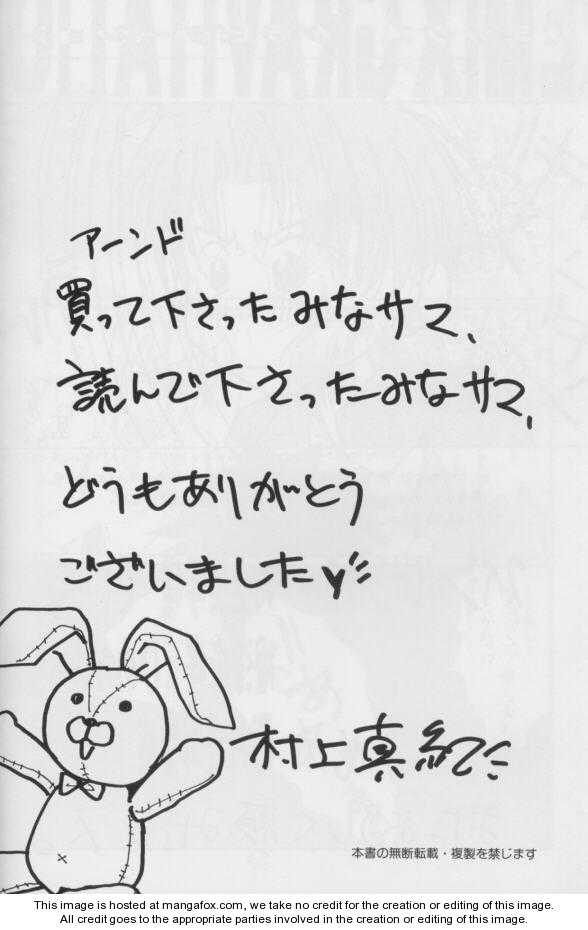 アーンド
買って下さったみなサマ、
読んで下さったみなサマ、
どうもありがとう
ございました
村上真紀
本書の無断転載・複製を禁じます
This image is hosted at mangafox.com, we take no credit for the creation or editing of this image.
All credit goes to the appropriate parties involved in the creation or editing of this image.